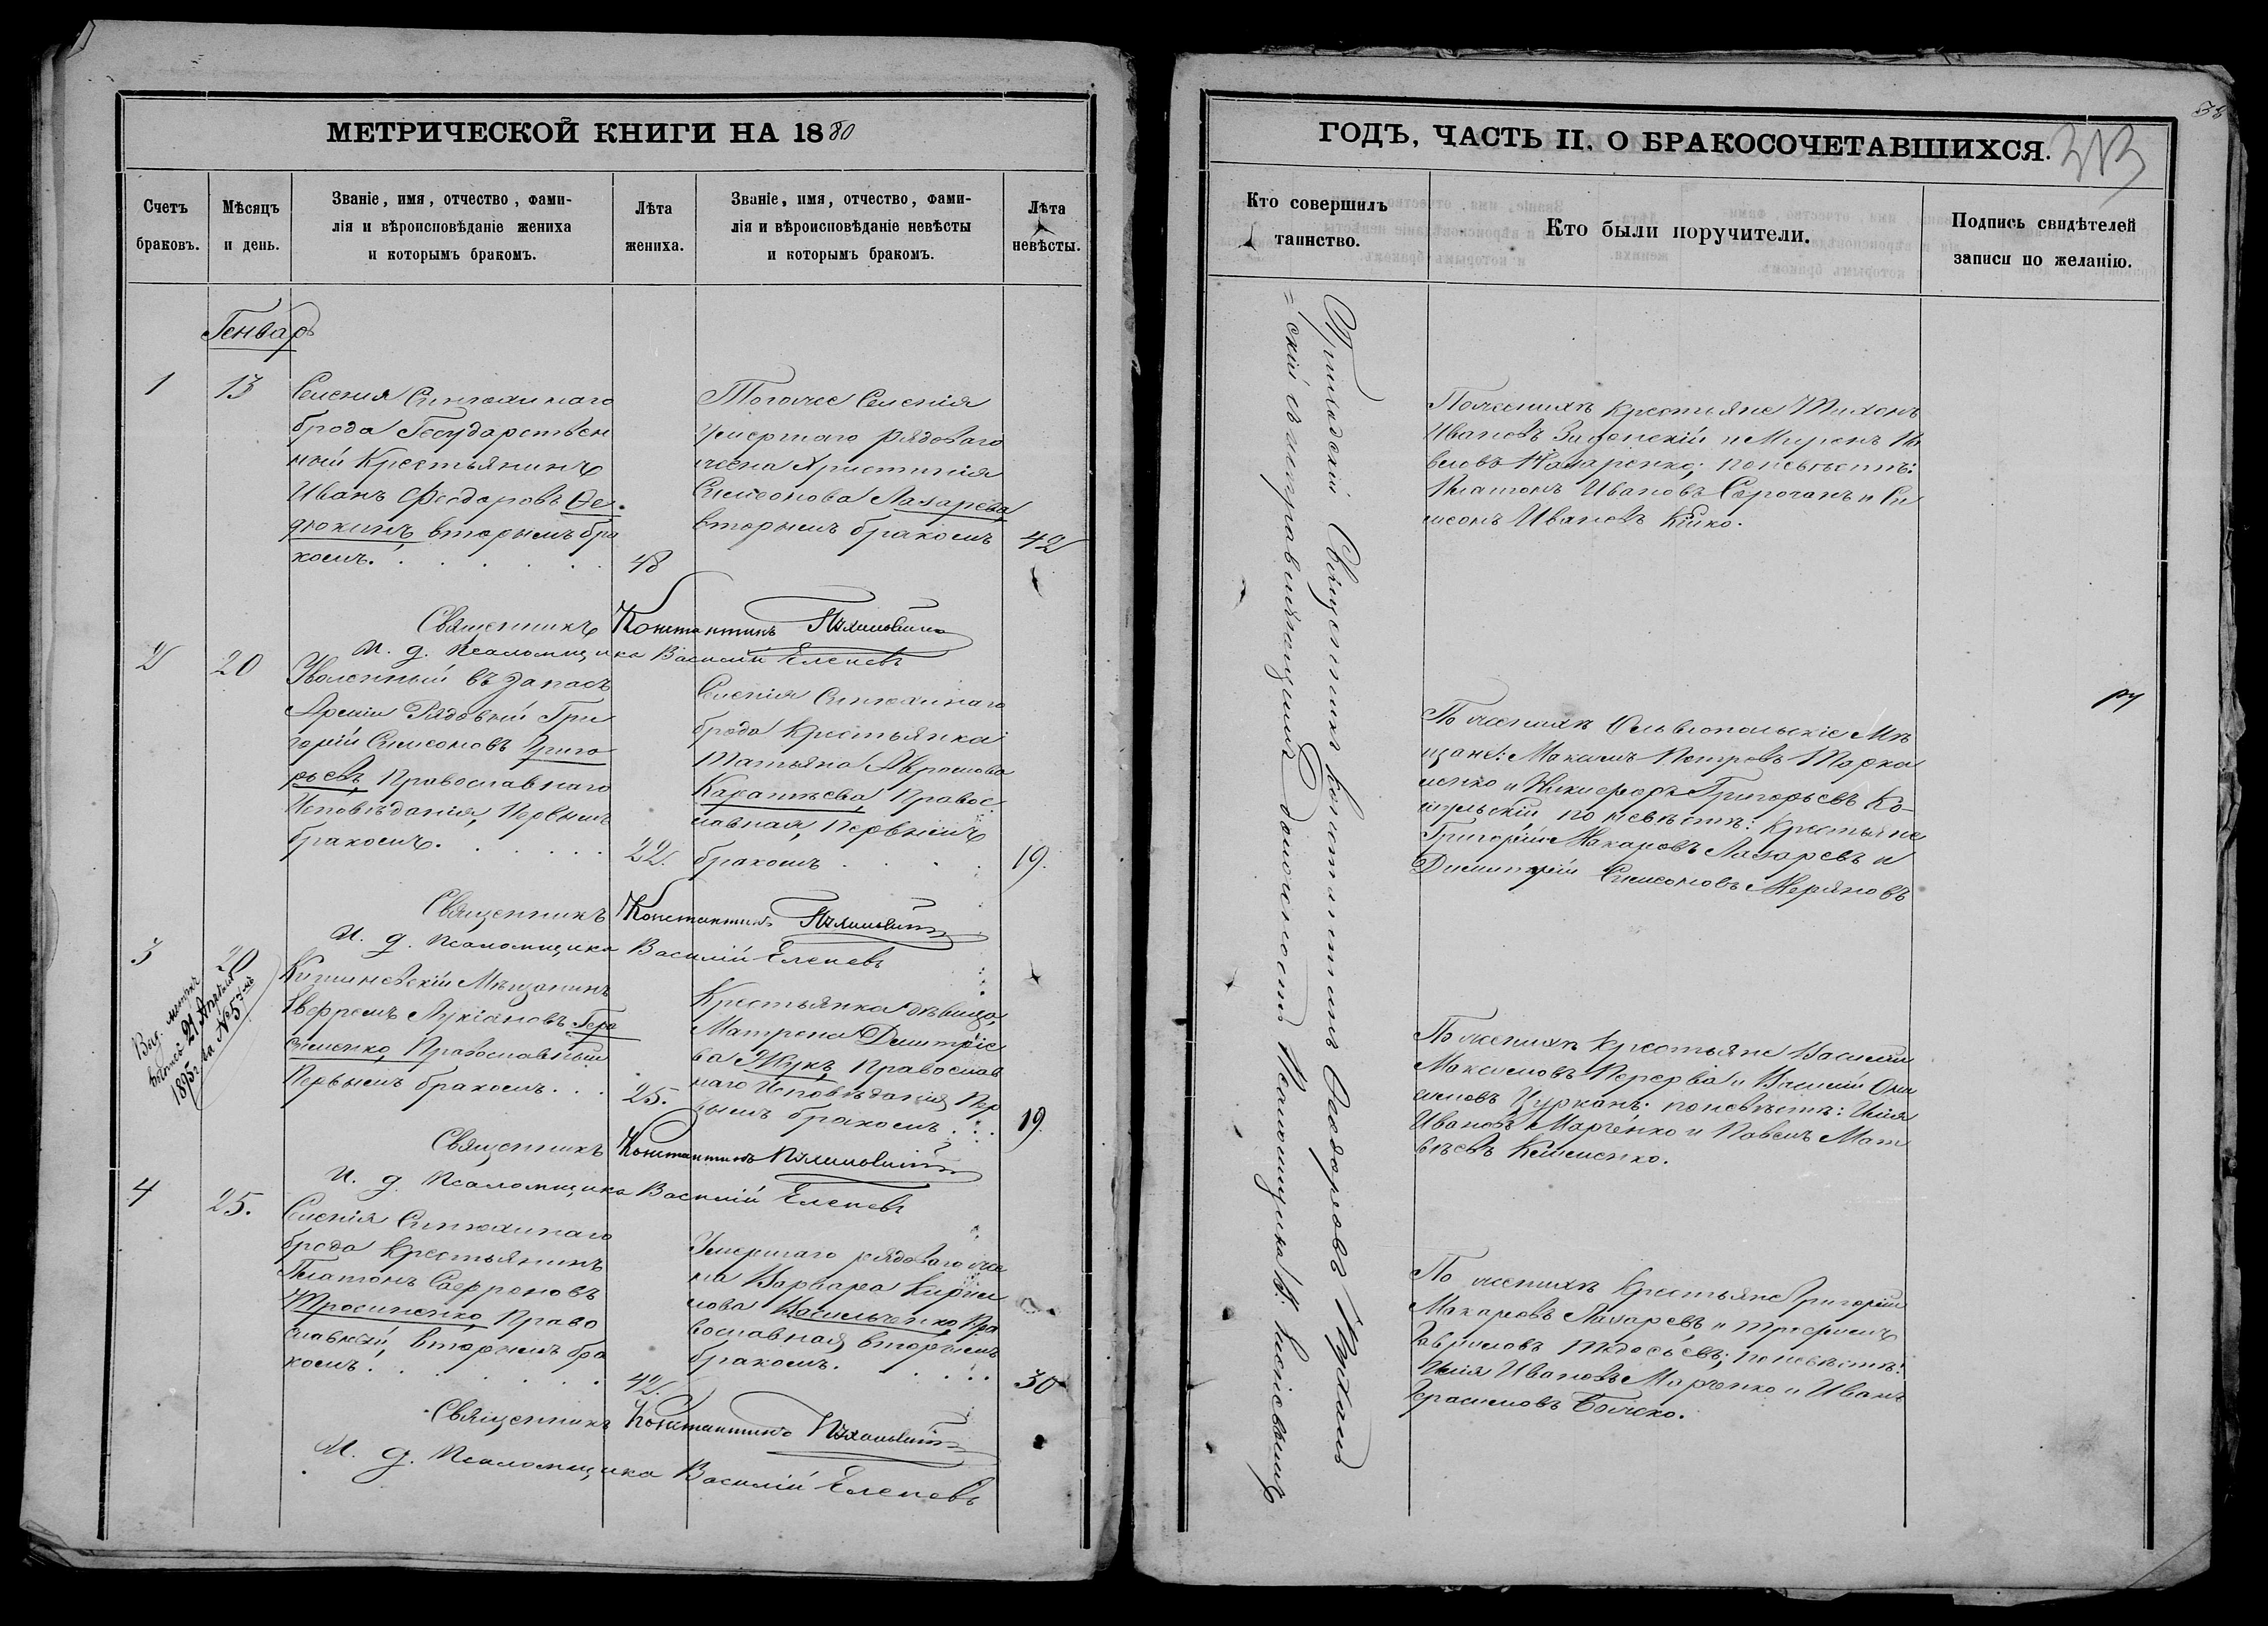 МЕТРИЧЕСКОЙ КНИГИ НА 1880
Счетъ браковъ.
Мѣсяцъ и день.
Званіе, имя, отчество, фами-
лія и вѣроисповѣданіе жениха
и которымъ бракомъ.
Лѣта жениха.
Званіе, имя, отчество, фами-
лія и вѣроисповѣданіе невѣсты
и которымъ бракомъ.
Лѣта невѣсты.
Генварь
1
13
Селенія Синюхинаго
брода Государствен
ный Крестьянинъ
Иванъ Феодоровъ Ѳе.
дюкинъ, вторымъ бра
комъ.
48
Тогоже Селенія
умершаго рядоваго
жена Христинія
Симеонова Лазарева
вторымъ бракомъ
42
Священникъ Константинъ
И. д. Псаломщика Василій Еленевъ
2
20
Уволенный въ запасъ
Арміи Рядовый Гри
горій Симеоновъ Григо
рьевъ, Православнаго
Исповѣданія, Первымъ
бракомъ.
22.
Селенія Синюхинаго
брода Крестьянка
Татьяна Авраамова
Правос
лавная, Первымъ
бракомъ
19.
Священникъ Константинъ
И. д. Псаломщика Василій Еленевъ
3
20
Выд. метрич.
21 Апрѣля
1895 г. за № 57
Кишиневскій Мѣщанинъ
Евфремъ Лукіановъ Гера
сименко, Православный
Первымъ бракомъ.
25.
Крестьянка дѣвица,
Матрона Димитріе
ва Жукъ, Православ
наго Исповѣданія Пер
вымъ бракомъ
19.
Священникъ Константинъ
И. д. Псаломщика Василій Еленевъ
4
25.
Селенія Синюхинаго
брода Крестьянинъ
Платонъ Сафроновъ
Тросиненко, Право
славный, вторымъ бра
комъ.
42.
Умершаго рядоваго же
на Варвара Кирил
лова Васильченко, Пра
вославная, вторымъ
бракомъ.
30
Священникъ Константинъ
И. д. Псаломщика Василій Еленевъ
ГОДЪ, ЧАСТЬ II. О БРАКОСОЧЕТАВШИХСЯ.
Кто совершилъ таинство.
Кто были поручители.
Подпись свидѣтелей
записи по желанію.
Священникъ Константинъ Ѳеодоровъ
исправляющимъ должность Псаломщика В. Еленевымъ
По женихѣ Крестьяне Тихонъ
Ивановъ Задонскій и Миронъ Па
вловъ Назаренко; по невѣстѣ:
Платонъ Ивановъ Сорочанъ и Си
меонъ Ивановъ Кійко.
По женихѣ Ольвіопольскіе Мѣ
щане: Максимъ Петровъ Марка
ленко и Никифоръ Григорьевъ Ко-
по невѣстѣ: Крестьяне
Григорій Макаровъ Лазаревъ и
Димитрій Симеоновъ Меряновъ
По женихѣ Крестьяне Василій
Максимовъ Перерва и Василій
Цурканъ; по невѣстѣ: Илія
Ивановъ Марченко и Павелъ Мат
вѣевъ Клименко.
По женихѣ Крестьяне Григорій
Макаровъ Лазаревъ и Трофимъ
Гавриловъ по невѣстѣ:
Илія Ивановъ Марченко и Иванъ
Герасимовъ Божко.